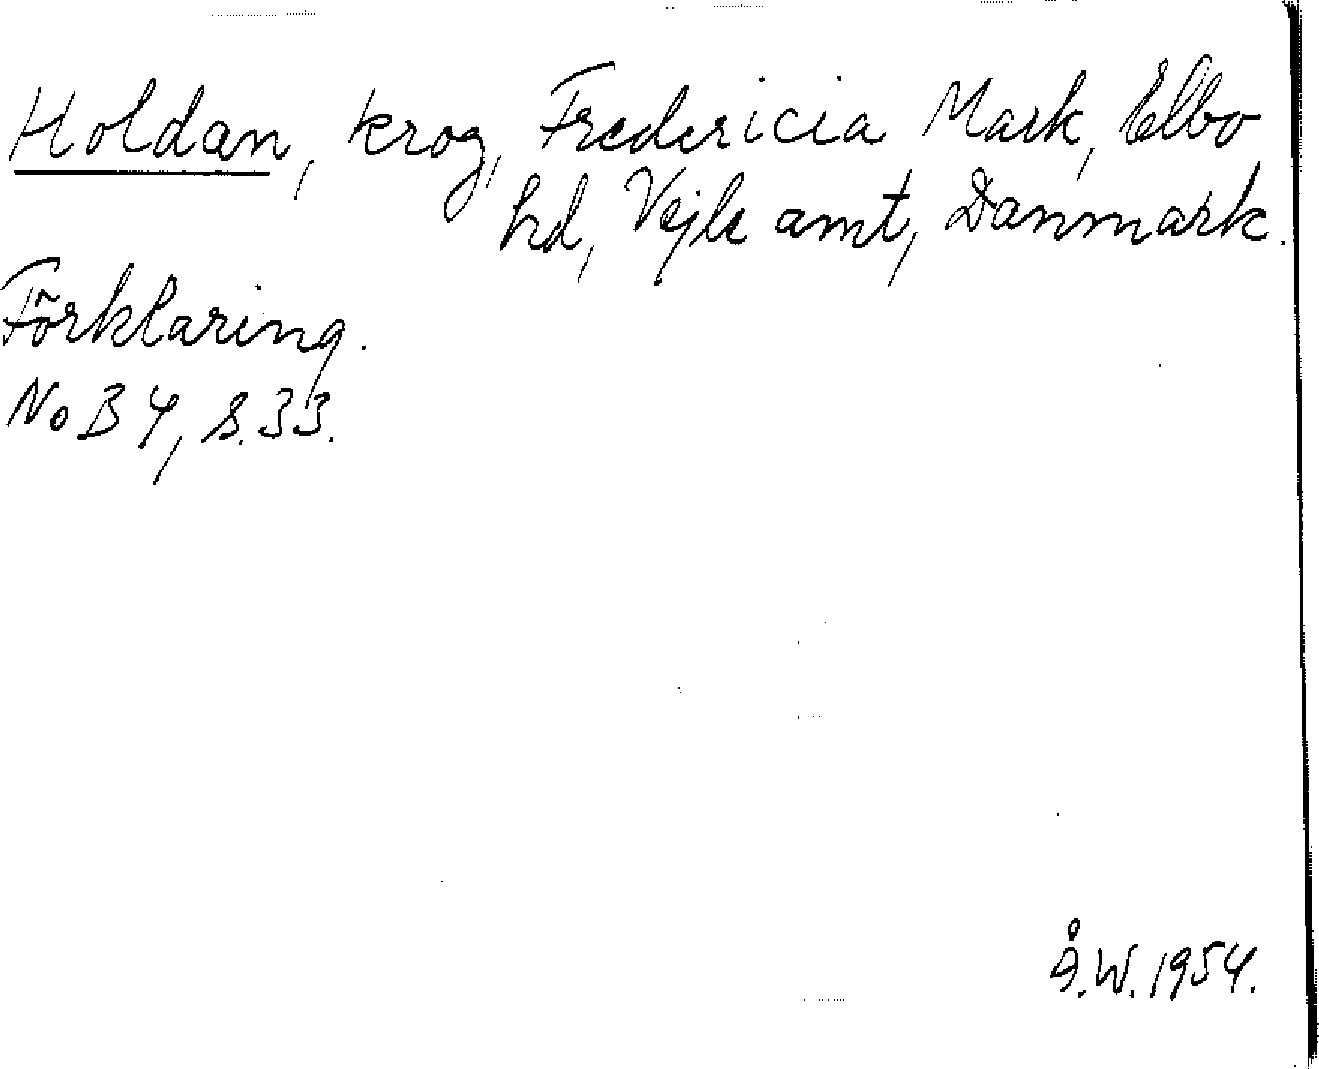 Holdan, krog, Fredericia Mark, Elbo
hd, Vejle amt, Danmark.
Förklaring.
NoB 4, s. 33.
Å.W. 1954.